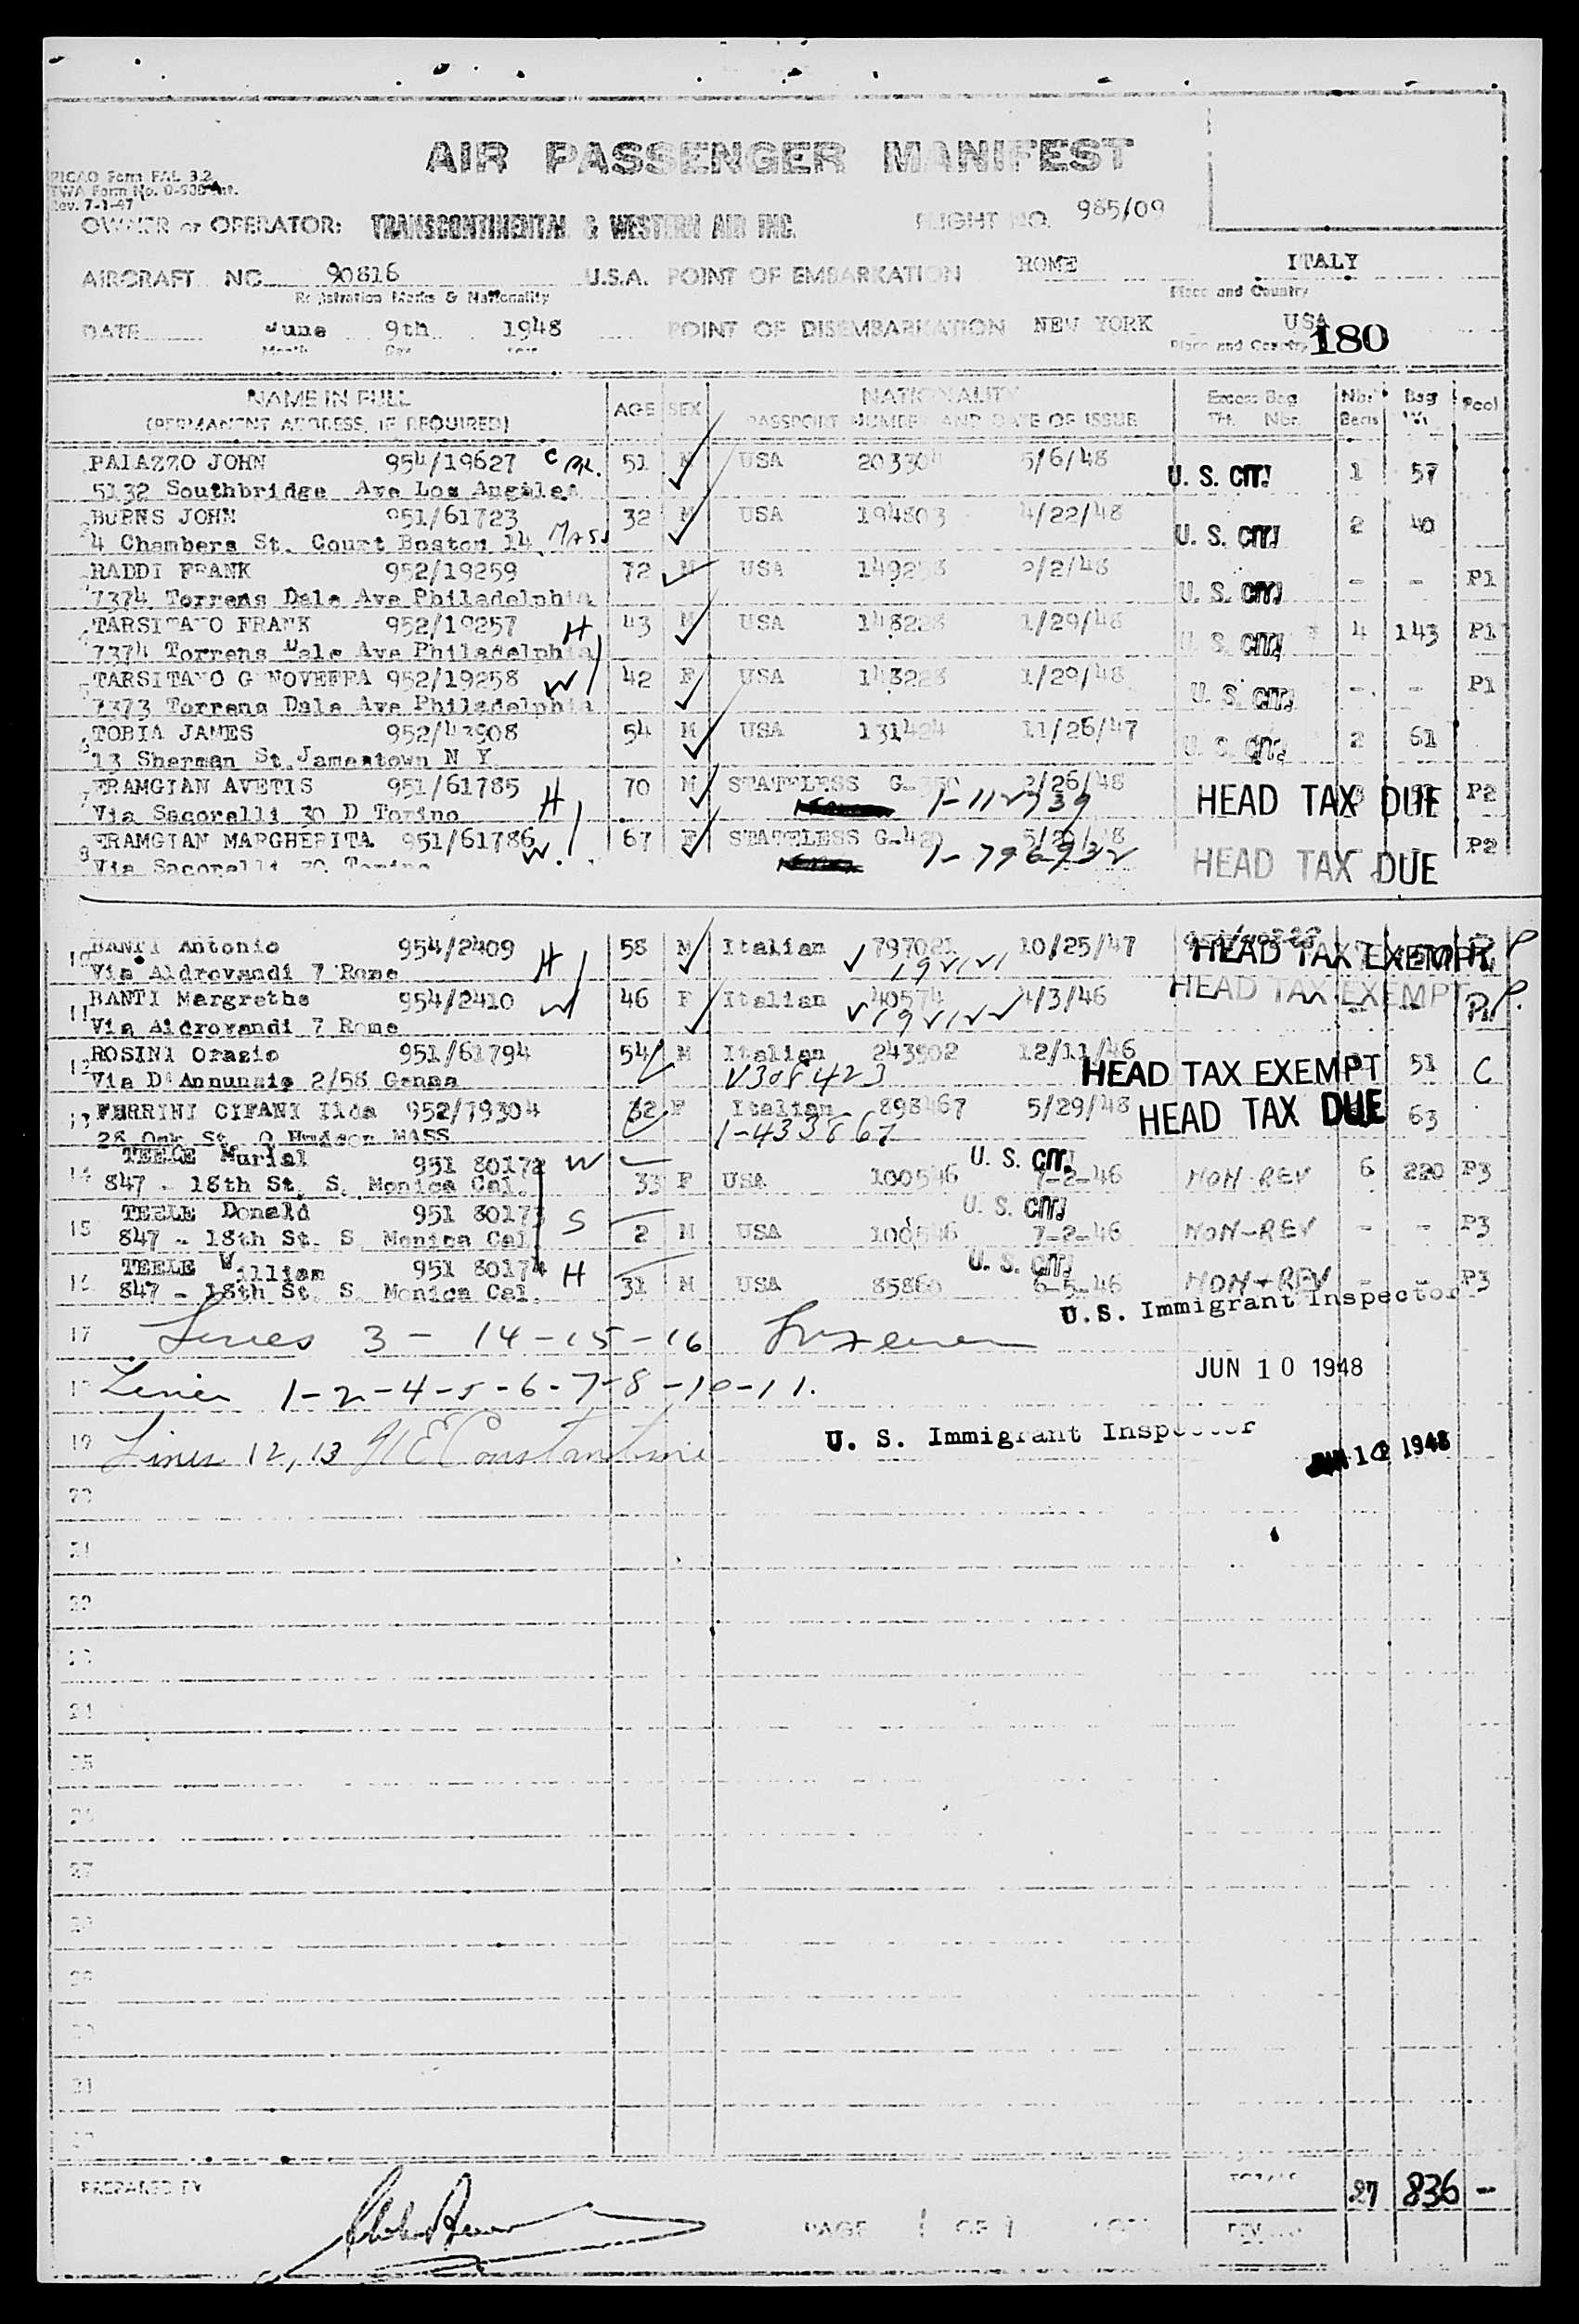 AIR PASSENGER MANIFEST
PICAO Form FAL 3.2
TWA Form No.
Rev. 7-1-47
OWNER or OPERATOR: TRANSCONTINENTAL & WESTERN AIR INC. FLIGHT NO. 985/09
AIRCRAFT NO. 90816 U.S.A. POINT OF EMBARKATION ROME ITALY
Registration Marks & Nationality Place and Country
DATE June 9th 1948 POINT OF DISEMBARKATION NEW YORK USA
Month Day Year Place and Country 180
NAME IN FULL AGE SEX NATIONALITY Excess Bag Nbr Bag Pool
(PERMANENT ADDRESS, IF REQUIRED) PASSPORT NUMBER AND DATE OF ISSUE Tkt. Nbr. Items Wt.
PALAZZO JOHN 954/19627 51 M USA 203304 5/6/48 U. S. CIT. 1 57
5132 Southbridge Ave Los Angeles
BURNS JOHN 951/61723 32 M USA 194803 4/22/48 U. S. CIT. 2 40
4 Chambers St. Court Boston 14 Mass
RADDI FRANK 952/19259 72 M USA 2/2/48 U. S. CIT. - - P1
7374 Torrens Dale Ave Philadelphia
TARSITANO FRANK 952/19257 H 43 M USA 148228 1/29/48 U. S. CIT. 4 143 P1
7374 Torrens Dale Ave Philadelphia
TARSITANO G NOVEFFA 952/19258 W 42 F USA 148228 1/29/48 U. S. CIT. - - P1
7373 Torrens Dale Ave Philadelphia
TOBIA JAMES 952/43908 54 M USA 131424 11/26/47 U. S. CIT. 2 61
13 Sherman St. Jamestown N Y
7 ERAMGIAN AVETIS 951/61785 H 70 M STATELESS 2/26/48 HEAD TAX DUE P2
Via Sacorelli 30 D Torino 1-112739
8 ERAMGIAN MARGHERITA 951/61786 W. 67 F STATELESS HEAD TAX DUE P2
Via Sacorelli 30 Torino 1-796922
10 BANTI Antonio 954/2409 H 58 M Italian 797021 10/25/47 HEAD TAX EXEMPT
Via Aldrovandi 7 Rome
11 BANTI Margrethe 954/2410 W 46 F Italian 40574 4/3/46 HEAD TAX EXEMPT
Via Aldrovandi 7 Rome
12 ROSINI Orazio 951/61794 54 M Italian 243902 12/11/46 HEAD TAX EXEMPT 51 C
Via D'Annunzio 2/58 Genoa V308423
13 FERRINI CIFANI Ilda 952/19304 32 F Italian 898467 5/29/48 HEAD TAX DUE 63
28 Oak St. O Hudson MASS 1-433867
14 TEELE Murial 951 80172 W 33 F USA 100546 7-2-46 U. S. CIT. NON-REV 6 220 P3
847 - 18th St. S. Monica Cal.
15 TEELE Donald 951 80173 S 2 M USA 100546 7-2-46 U. S. CIT. NON-REV - - P3
847 - 18th St. S. Monica Cal.
16 TEELE William 951 80174 H 31 M USA 85860 6-5-46 U. S. CIT. NON-REV - - P3
847 - 18th St. S. Monica Cal.
U.S. Immigrant Inspector
17 Lines 3 - 14 - 15 - 16
JUN 10 1948
Lines 1-2-4-5-6-7-8-10-11.
19 Lines 12, 13 Constantine U. S. Immigrant Inspector
1948
20
21
22
23
24
25
26
27
28
29
30
31
PREPARED BY PAGE 1 OF 1 TOTALS 27 836 -